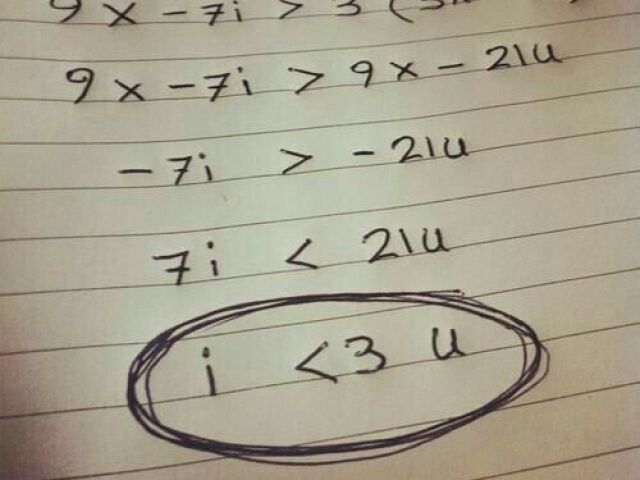 9x - 7i > 3 (3
9x - 7i > 9x - 21u
- 7i > - 21u
7i < 21u
i <3 u